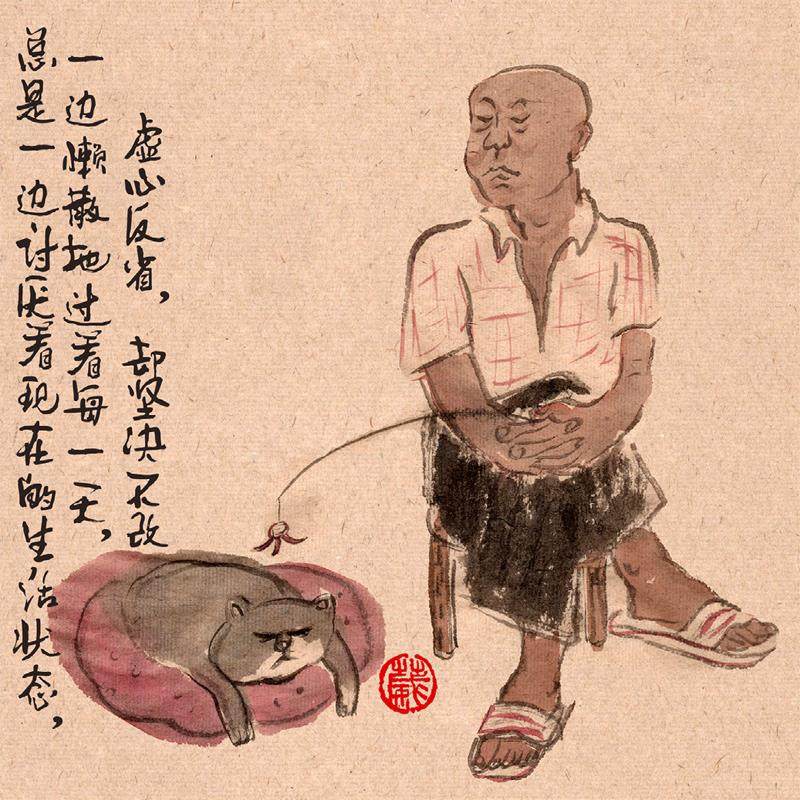 总是一边讨厌着现在的生活状态，
一边懒散地过着每一天，
虚心反省，却坚决不改